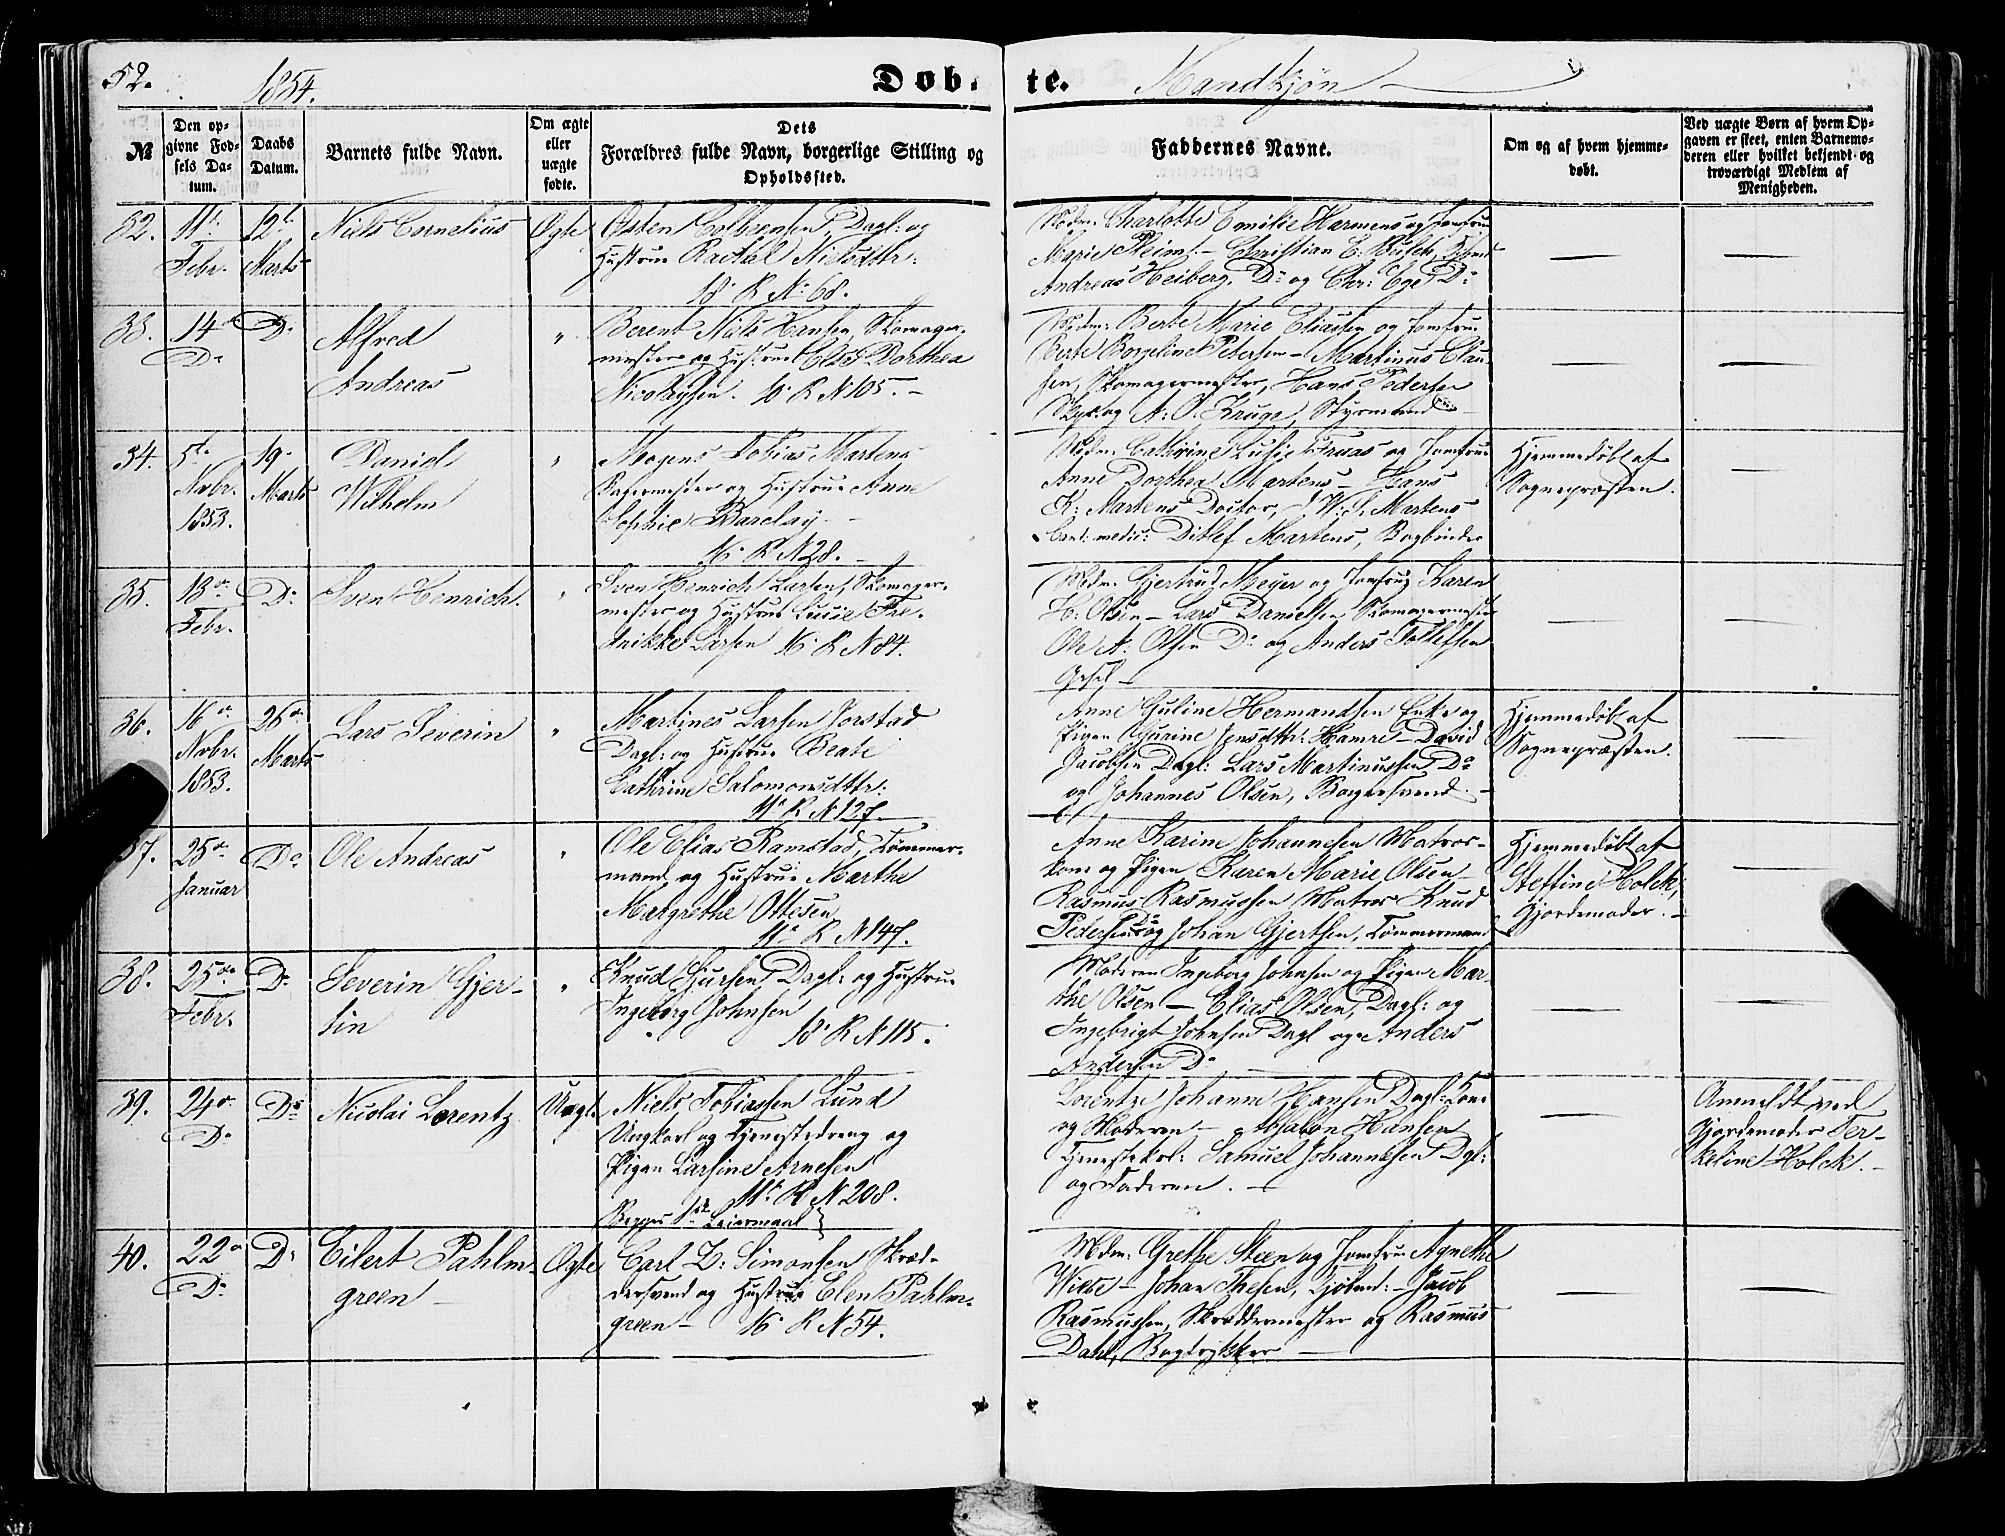 52.
1854.
Døb-
te.
Mandkjøn
№
Den op-
givne Fød-
sels Da-
tum.
Daabs
Datum.
Barnets fulde Navn.
Om ægte
eller
uægte
fødte.
Dets
Forældres fulde Navn, borgerlige Stilling og
Opholdssted.
Faddernes Navne.
Om og af hvem hjemme-
døbt.
Ved uægte Børn af hvem Op-
gaven er skeet, enten Barnemo-
deren eller hvilket bekjendt og
troværdigt Medlem af
Menigheden.
32.
11te
Febr.
12te
Marts
Niels Cornelius
Ægte
Østen Colbeensen, Dagl: og
Hustrue Rachel Nielsdttr:
18 R № 68.
Mdm. Charlotte Emilie Harmens og Jomfrue
Marie Pleim - Christian E. Busch,
Andreas Heiberg, Do og Chr: Ege Do
33.
14
Do
Do
Alfred
Andreas
"
Berent Niels Hansen Skomager-
mester og Hustrue Else Dorthea
Nicolaysen. 18 R N 105. -
Mdm: Berte Marie Eliassen og Jomfrue
Berte Borgeline Petersen - Martinus Clau-
sen, Skomagermester, Hans Pedersen
Skpr. og A. O. Kruge, Styrmand
34.
5te
Novbr.
1853.
19
Marts
Daniel
Wilhelm
"
Mogens Tobias Martens
Bagermester og Hustrue Anne
Sophie Barclay -
16 R N 28. -
Mdm. Cathrine Lucie Fraas og Jomfrue
Anne Dorthea Martens - Hans
K: Martens Doctor, J. W. S. Martens
Cand: medic: Ditlef Martens, Bogbinder
Hjemmedøbt af
Sognepræsten.
35.
13de
Febr.
Do
Sven Henrich
"
Sven Henrich Larsen, Skomager-
mester og Hustrue Lucie Fre-
drikke Larsen 16 R N 84.
Mdm. Gjertrud Meyer og Jomfrue Karen
H. Olsen - Lars Danielsen Skomagermester
Ole A: Olsen Do og Anders Tollefsen
Gesel -
36.
16de
Novbr.
1853.
26de
Marts
Lars Severin
"
Martines Larsen Jorstad
Dagl: og Hustrue Beate
Cathrine Salomonsdttr:
11 R N 127.
Anne Guline Hermandsen Enke og
Pigen Gurine Jensdttr: Hamre - David
Jacobsen Dagl: Lars Martinussen Do
og Johannes Olsen, Bagersvend. -
Hjemmedøbt af
Sognepræsten.
37.
25de
Januar
Do
Ole Andreas
"
Ole Elias Ramstad, Tømmer-
mand og Hustrue Marthe
Margrethe Ottesen
11 R N 147.
Anne Karine Johannesen Matros-
kone og Pigen Karen Marie Olsen
Rasmus Rasmussen Matros Knud
Pedersen Do og Johan Gjertsen, Tømmermand
Hjemmedøbt af
Steffine Holck,
Gjordemoder. -
38.
25de
Febr.
Do
Severin Gjer-
tin
"
Knud Sjursen, Dagl: og Hustrue
Ingeborg Johnsen
18 R N 115.
Moderen Ingeborg Johnsen og Pigen Mar-
the Olsen - Elias Olsen, Dagl: og
Ingebrigt Johnsen Dagl og Anders
Andersen Do
39.
24de
Do
Do
Nicolai Lorentz
Uægte
Niels Tobiassen Lund
Ungkarl og Tjenestedreng og
Pigen Larsine Arnesen
11 R N 208.
Begges 1ste Leiermaal
Lorentze Johanne Hansen Dagl: Kone
og Moderen - Absalon Hansen
Tjenestekrl: Samuel Johannesen Dgl:
og Faderen. -
Anmeldt ved
Gjordemoder Ter-
keline Holck. -
40.
22de
Do
Do
Eilert Pahlm-
green -
Ægte
Carl L: Simonsen Skræd-
dersvend og Hustrue Elen Pahlm-
green - 16 R N 54.
Mdm: Grethe Steen og Jomfrue Agnethe
Wiese - Johan Thesen, Kjøbmd: - Jacob
Rasmussen, Skræddermester og Rasmus
Dahl, Bogtrykker -